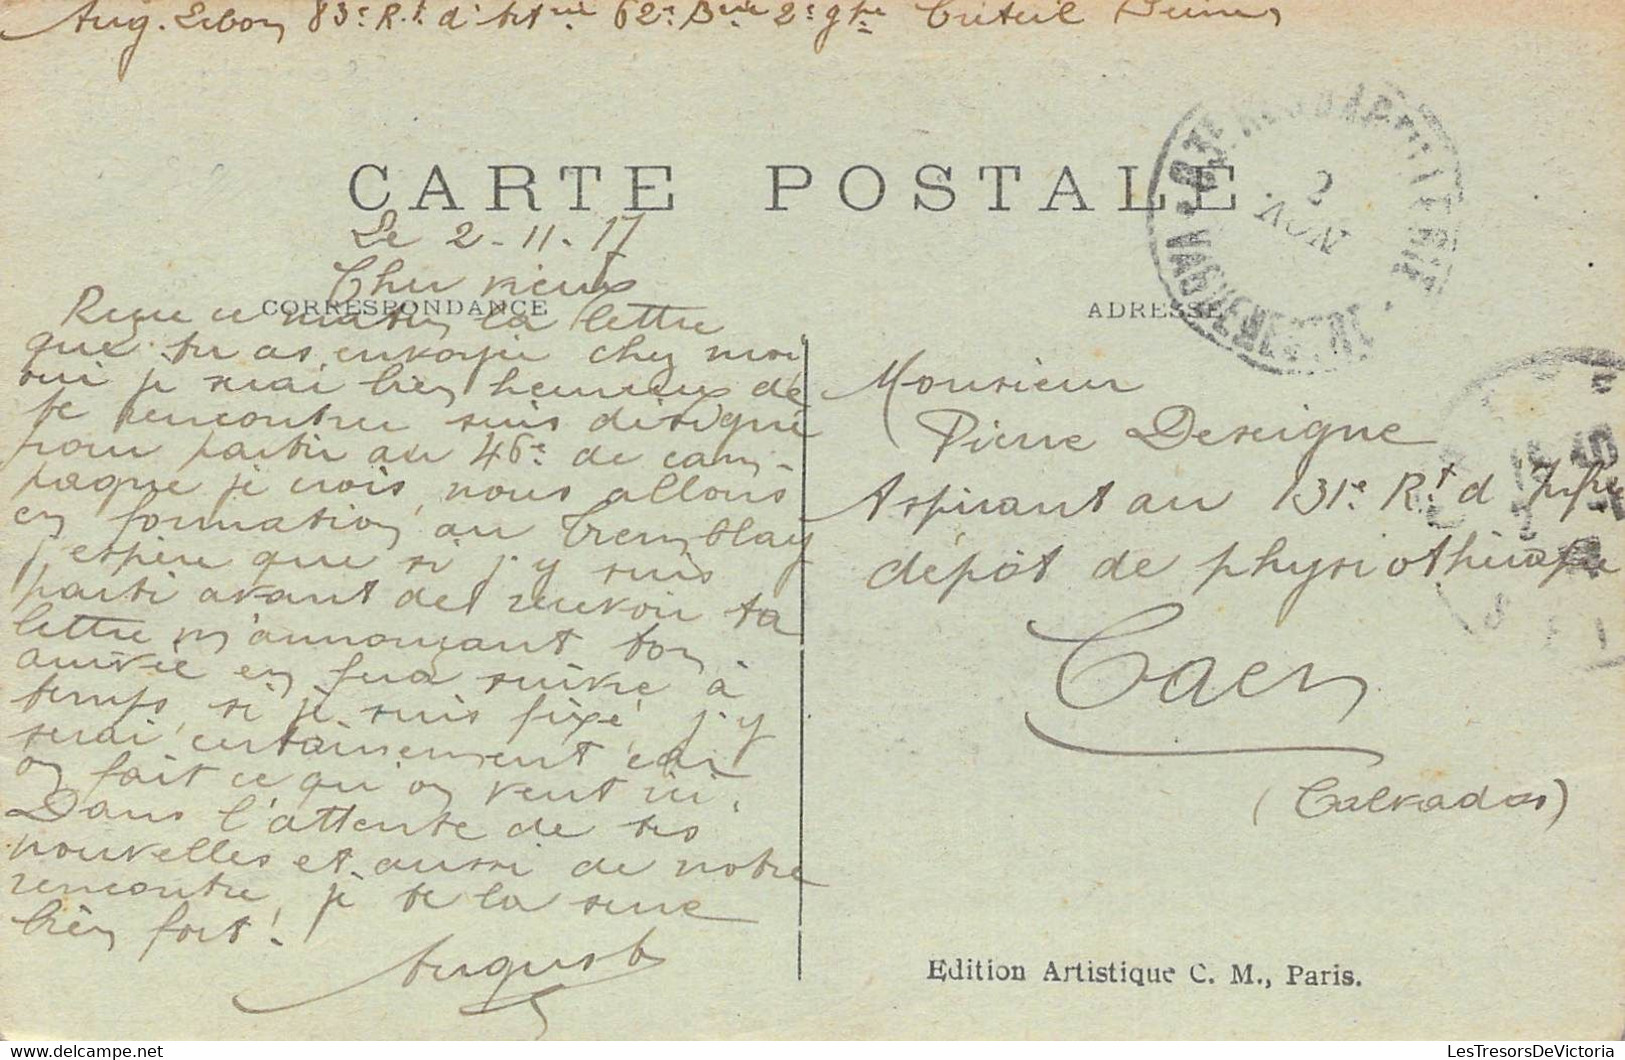 Aug. Lebon 83e R.t d'Artrie 62e Brie 2e gpe Créteil
CARTE POSTALE
Le 2-11-17
Cher vieux
CORRESPONDANCE
Reçu ce matin la lettre
que tu as envoyée chez moi
oui je serai bien heureux de
te rencontrer suis désigné
pour partir au 46e de cam-
pagne je crois, nous allons
en formation au Tremblay
j'espère que si j'y suis
parti avant de recevoir ta
lettre m'annonçant ton
arrivée elle fera suivre à
temps, si je suis fixé, j'y
serai certainement car
on fait ce qu'on veut ici.
Dans l'attente de tes
nouvelles et aussi de notre
rencontre, je te la serre
bien fort!
Auguste
NOV
ADRESSE
Monsieur
Pierre Deseigne
Aspirant au 131e R.t d Infie
dépôt de physiothérapie
Caen
(Calvados)
Edition Artistique C. M., Paris.
LesTresorsDeVictoria